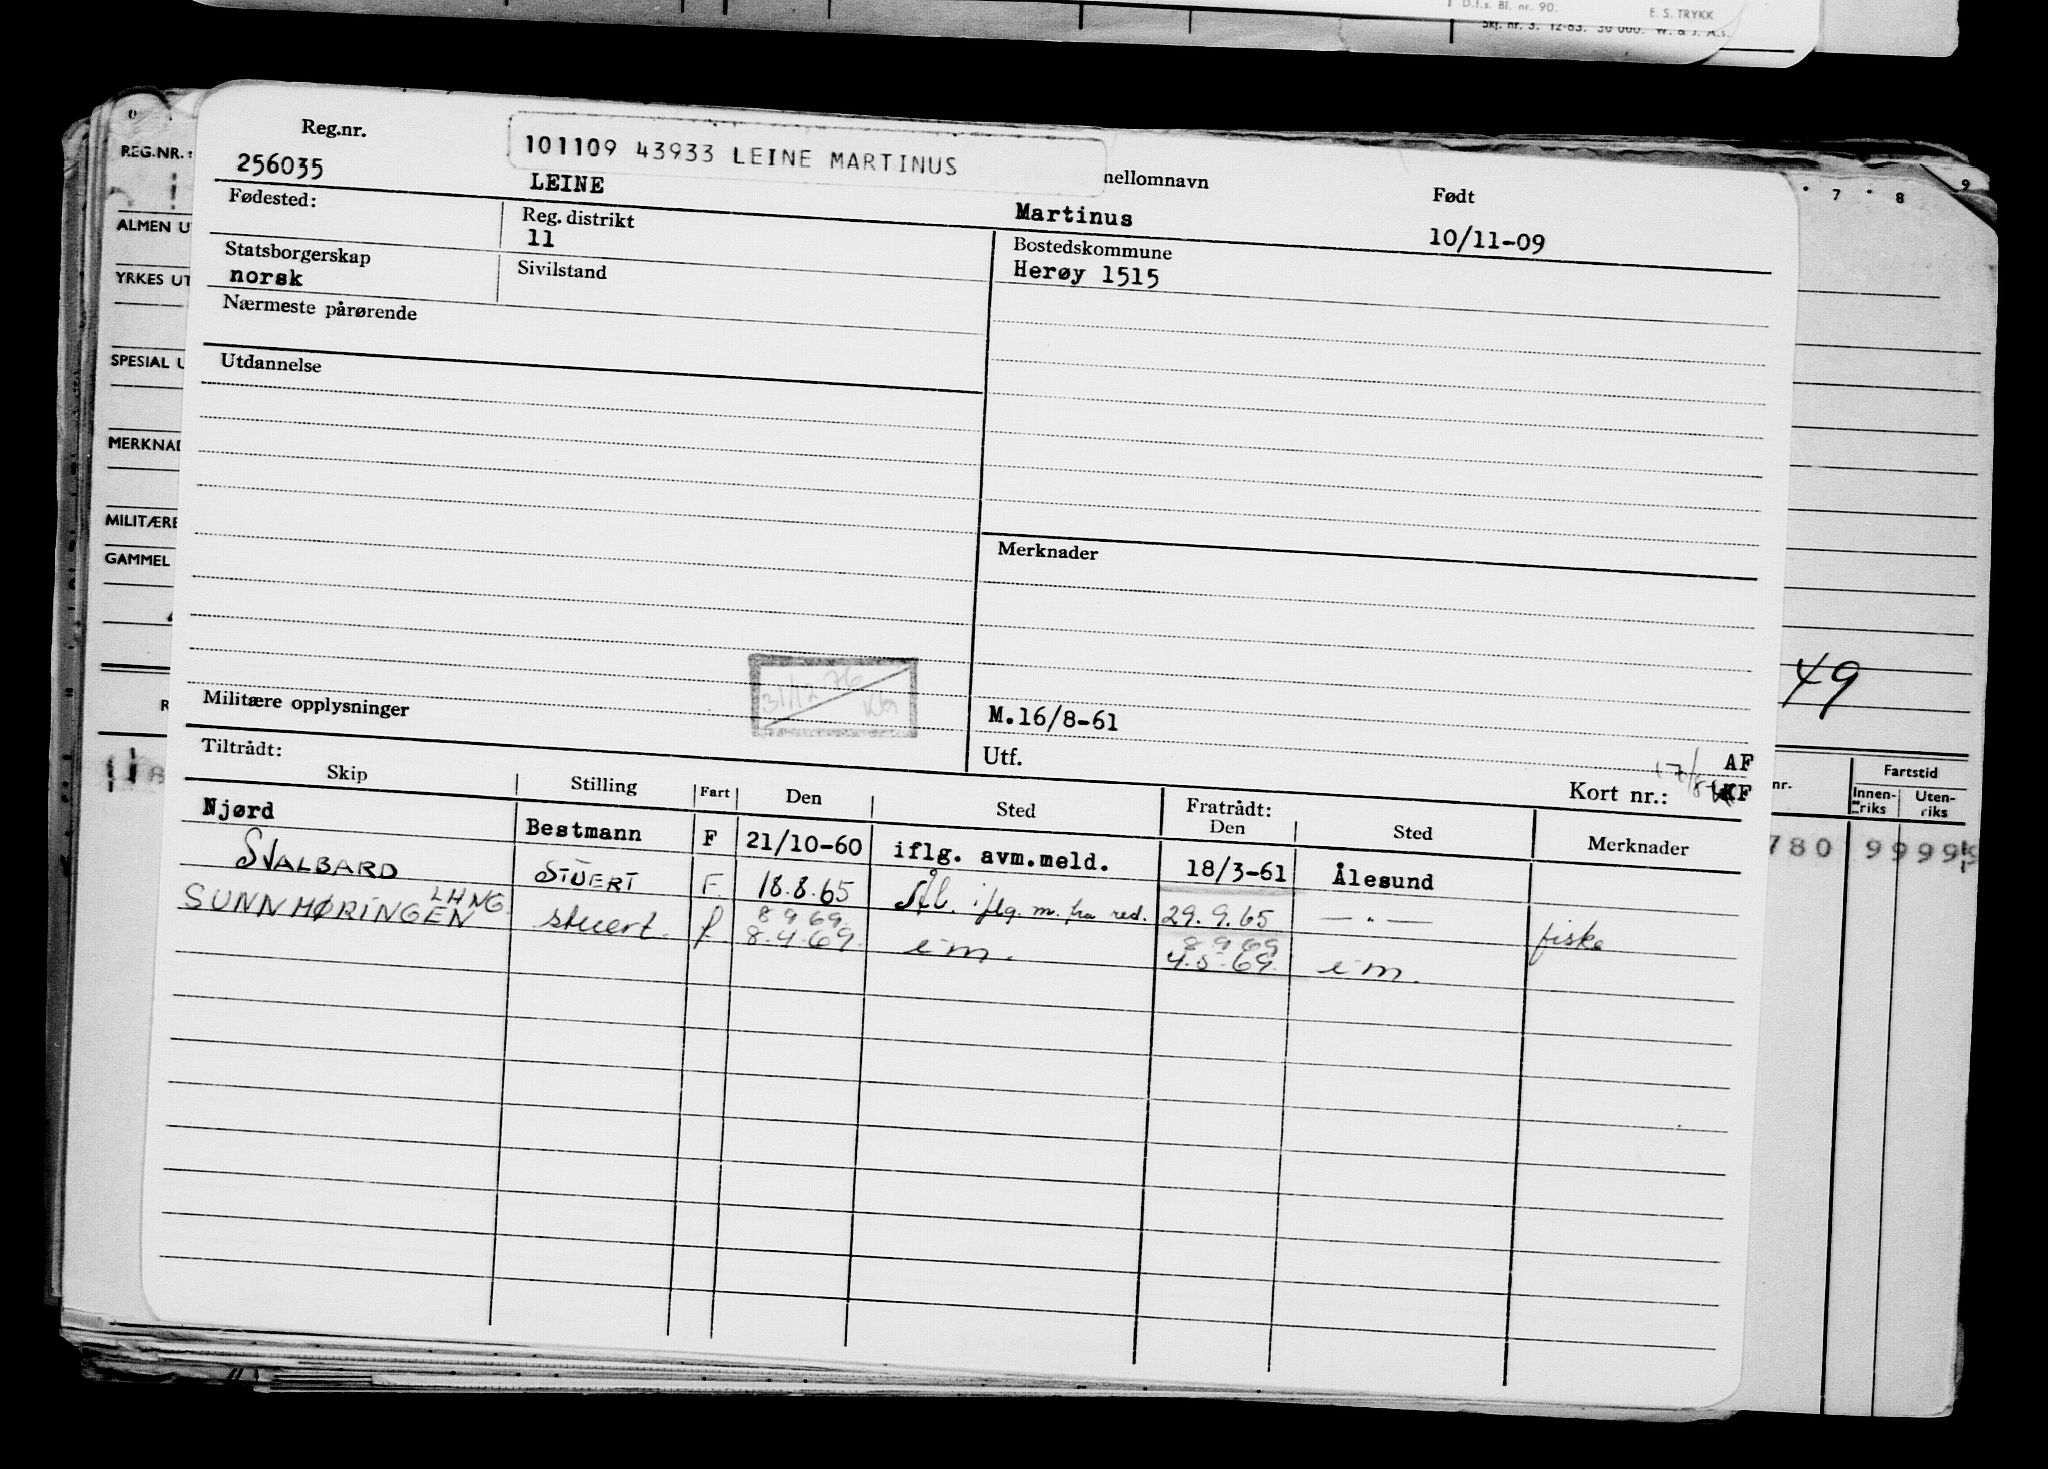 D.f.s. Bl. nr. 90. E. S. TRYKK
Skj. nr. 3. 12-63. 30 000. W. & J. A.s.
REG.NR.:
ALMEN U
YRKES UT
SPESIAL U
MERKNAD
MILITÆRE
GAMMEL
R
7 8 9
49
nr. Fartstid
Innen-riks Uten-riks
780 9999
Reg.nr. 101109 43933 LEINE MARTINUS
256035 LEINE mellomnavn Født
Martinus 10/11-09
Fødested: Reg. distrikt Bostedskommune
11 Herøy 1515
Statsborgerskap Sivilstand
norsk
Nærmeste pårørende
Utdannelse
Merknader
31/12 76
Militære opplysninger M.16/8-61
Utf. AF
Kort nr.: 17/8 KF
Tiltrådt: Fratrådt:
Skip Stilling Fart Den Sted Den Sted Merknader
Njørd Bestmann F 21/10-60 iflg. avm.meld. 18/3-61 Ålesund
SVALBARD STUERT F 18.8.65 Ål. iflg. m. fra red. 29.9.65 — " —
LHNG.
SUNNMØRINGEN stuert. f 8.4.69 e m. 4.5.69 e m. fiske
8 9 69 8 9 69